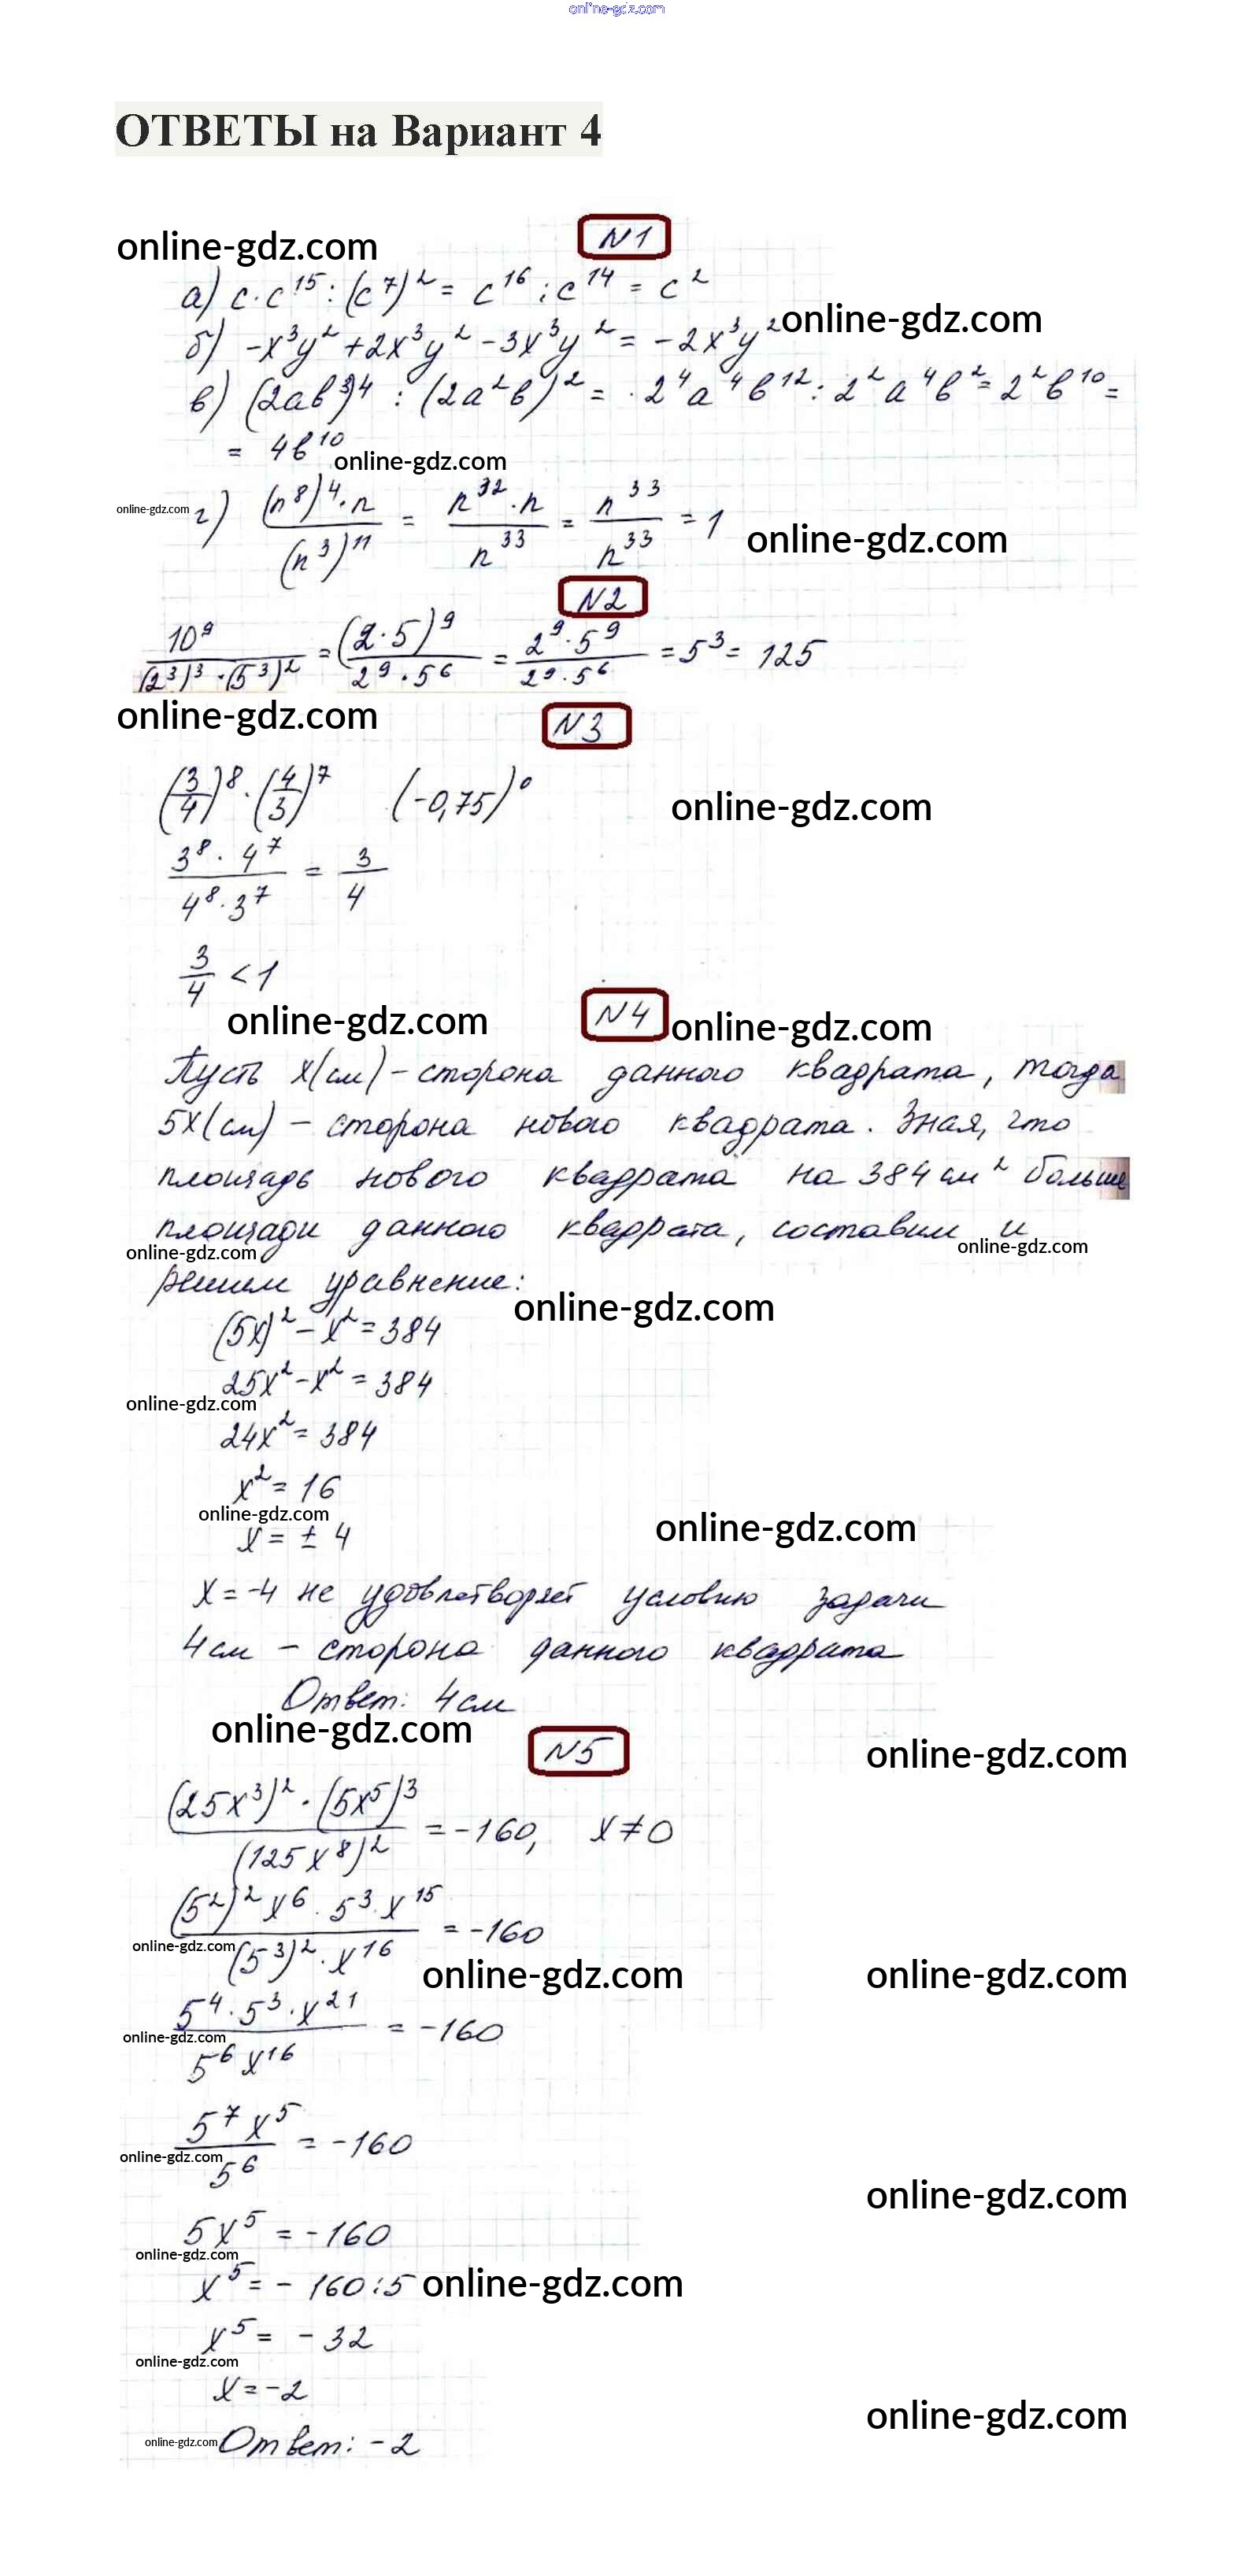 online-gdz.com
ОТВЕТЫ на Вариант 4
online-gdz.com
N1
а) c·c¹⁵:(c⁷)² = c¹⁶:c¹⁴ = c²
б) -x³y²+2x³y²-3x³y² = -2x³y²
online-gdz.com
в) (2ab³)⁴ : (2a²b)² = 2⁴a⁴b¹²:2²a⁴b² = 2²b¹⁰ =
= 4b¹⁰
online-gdz.com
online-gdz.com
г) (n⁸)⁴·n / (n³)¹¹ = n³²·n / n³³ = n³³ / n³³ = 1
online-gdz.com
N2
10⁹ / (2³)³·(5³)² = (2·5)⁹ / 2⁹·5⁶ = 2⁹·5⁹ / 2⁹·5⁶ = 5³ = 125
online-gdz.com
N3
(3/4)⁸·(4/3)⁷ (-0,75)⁰
online-gdz.com
3⁸·4⁷ / 4⁸·3⁷ = 3/4
3/4 < 1
online-gdz.com
N4
online-gdz.com
Пусть x(см) - сторона данного квадрата, тогда
5x(см) - сторона нового квадрата. Зная, что
площадь нового квадрата на 384 см² больше
площади данного квадрата, составим и
online-gdz.com
online-gdz.com
решим уравнение:
online-gdz.com
(5x)² - x² = 384
25x² - x² = 384
online-gdz.com
24x² = 384
x² = 16
online-gdz.com
online-gdz.com
x = ± 4
x = -4 не удовлетворяет условию задачи
4 см - сторона данного квадрата
Ответ: 4 см
online-gdz.com
N5
online-gdz.com
(25x³)²·(5x⁵)³ / (125x⁸)² = -160, x ≠ 0
(5²)²x⁶·5³·x¹⁵ / (5³)²·x¹⁶ = -160
online-gdz.com
online-gdz.com
online-gdz.com
5⁴·5³·x²¹ / 5⁶x¹⁶ = -160
online-gdz.com
5⁷x⁵ / 5⁶ = -160
online-gdz.com
online-gdz.com
5x⁵ = -160
online-gdz.com
x⁵ = - 160:5
online-gdz.com
x⁵ = - 32
online-gdz.com
x = -2
online-gdz.com
online-gdz.com
Ответ: -2